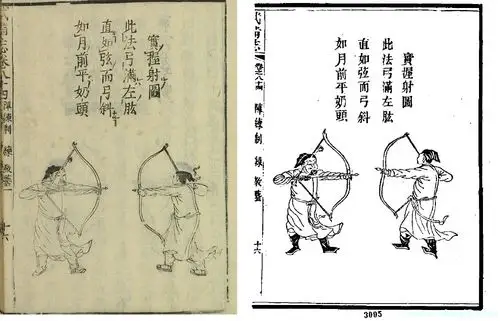 實握射圖
此法弓滿左肱
直如弦而弓斜
如月前平奶頭
備志卷八十四
陣練制 練 教藝一
十六
實握射圖
此法弓滿左肱
直如弦而弓斜
如月前平奶頭
備志
陣練制 練 教藝
十六